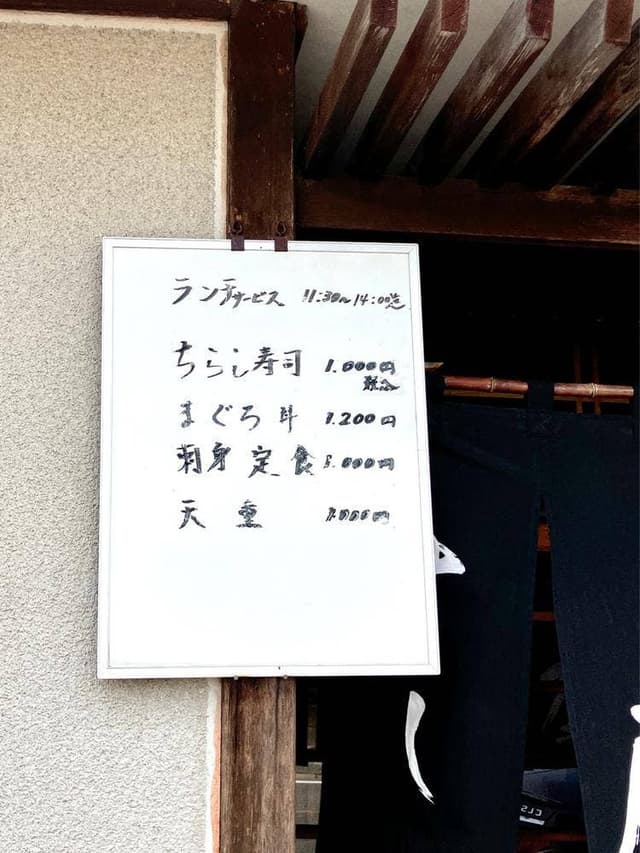 ランチサービス 11:30〜14:00迄
ちらし寿司 1.000円
税込
まぐろ丼 1.200円
刺身定食 1.000円
天重 1.000円